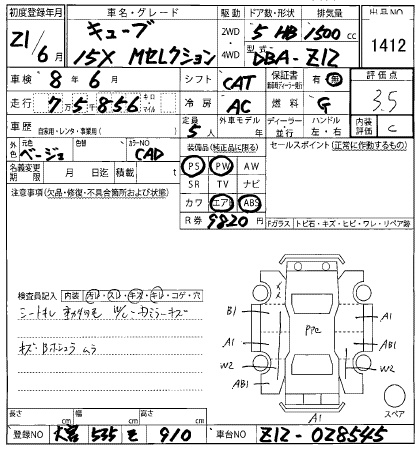 初度登録年月 車名・グレード 駆動 ドア数・形状 排気量 出品NO
Z1/6月 キューブ 15X Mセレクション 2WD・4WD 5 HB 1500 cc 1412
型式 DBA-Z12
車検 8年6月 シフト CAT 保証書 有・無 評価点
走行 7万5千856 キロ・マイル 冷房 AC 燃料 G 3.5
車歴 自家用・レンタ・事業用( ) 定員 5人 外車モデル 年 ディーラー・並行 ハンドル 左・右 内装評価 C
外色 元色 ベージュ 色替 カラーNO CAD 装備品(純正品に限る) セールスポイント(正常に作動するもの)
名義変更期限 月 日迄 積載 t PS PW AW
注意事項(欠品・修復・不具合箇所および状態) SR TV ナビ
カワ エアB ABS
R券 9820円 Fガラス トビ石・キズ・ヒビ・ワレ・リペア跡
検査員記入 内装 汚レ・スレ・キズ・キレ・コゲ・穴
キズ・Bホシュウ ムラ
B1 A1
PPe
A1 AB1
W2 W2
AB1
A1 スペア
長さ cm 幅 cm 高さ cm
登録NO 大宮 535 そ 910 車台NO Z12-028545